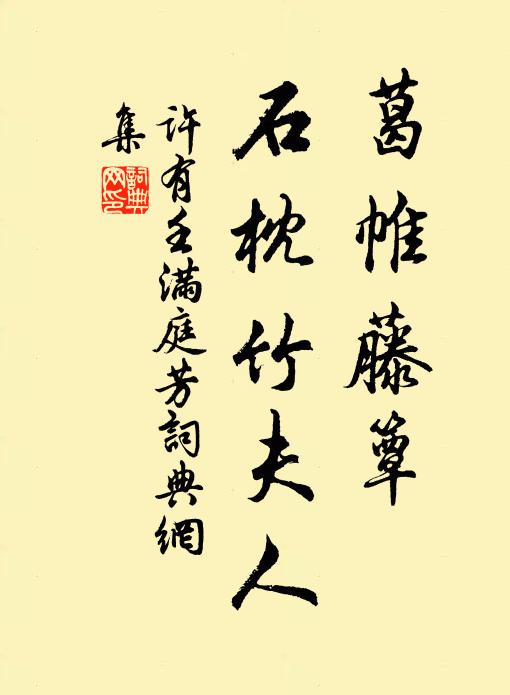 葛帷藤簟
石枕竹夫人
許有壬滿庭芳詞典網
集
詞典網印